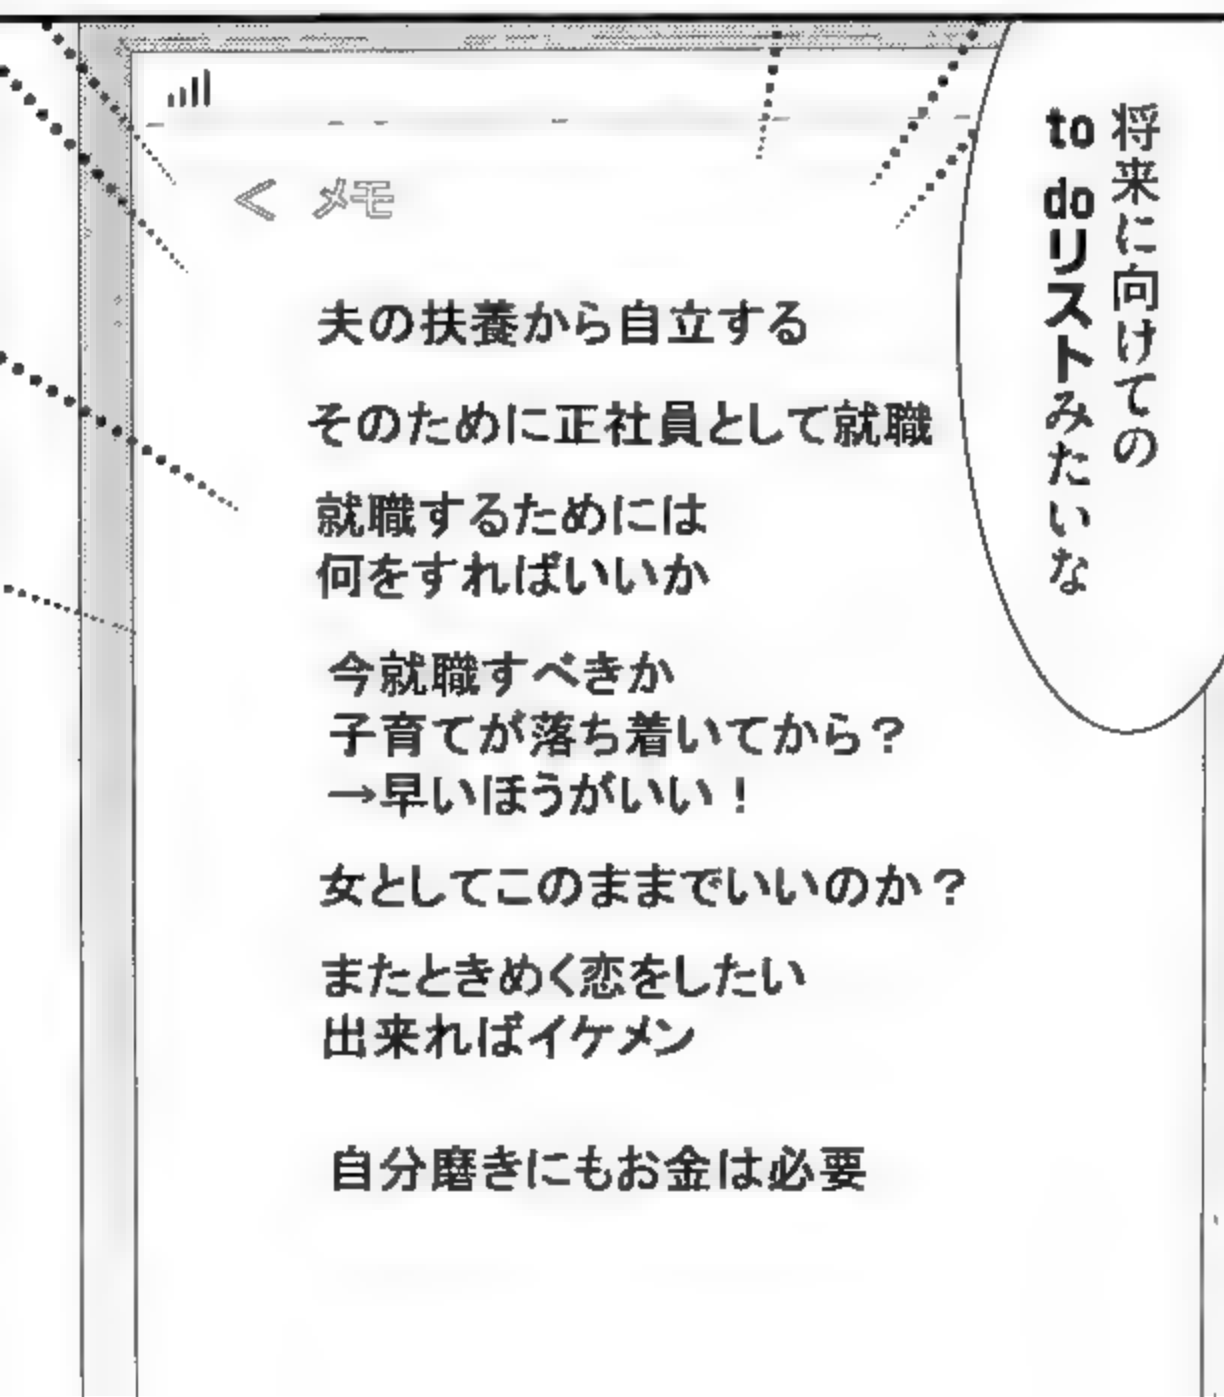 将来に向けての
to doリストみたいな
< メモ
夫の扶養から自立する
そのために正社員として就職
就職するためには
何をすればいいか
今就職すべきか
子育てが落ち着いてから？
→早いほうがいい！
女としてこのままでいいのか？
またときめく恋をしたい
出来ればイケメン
自分磨きにもお金は必要